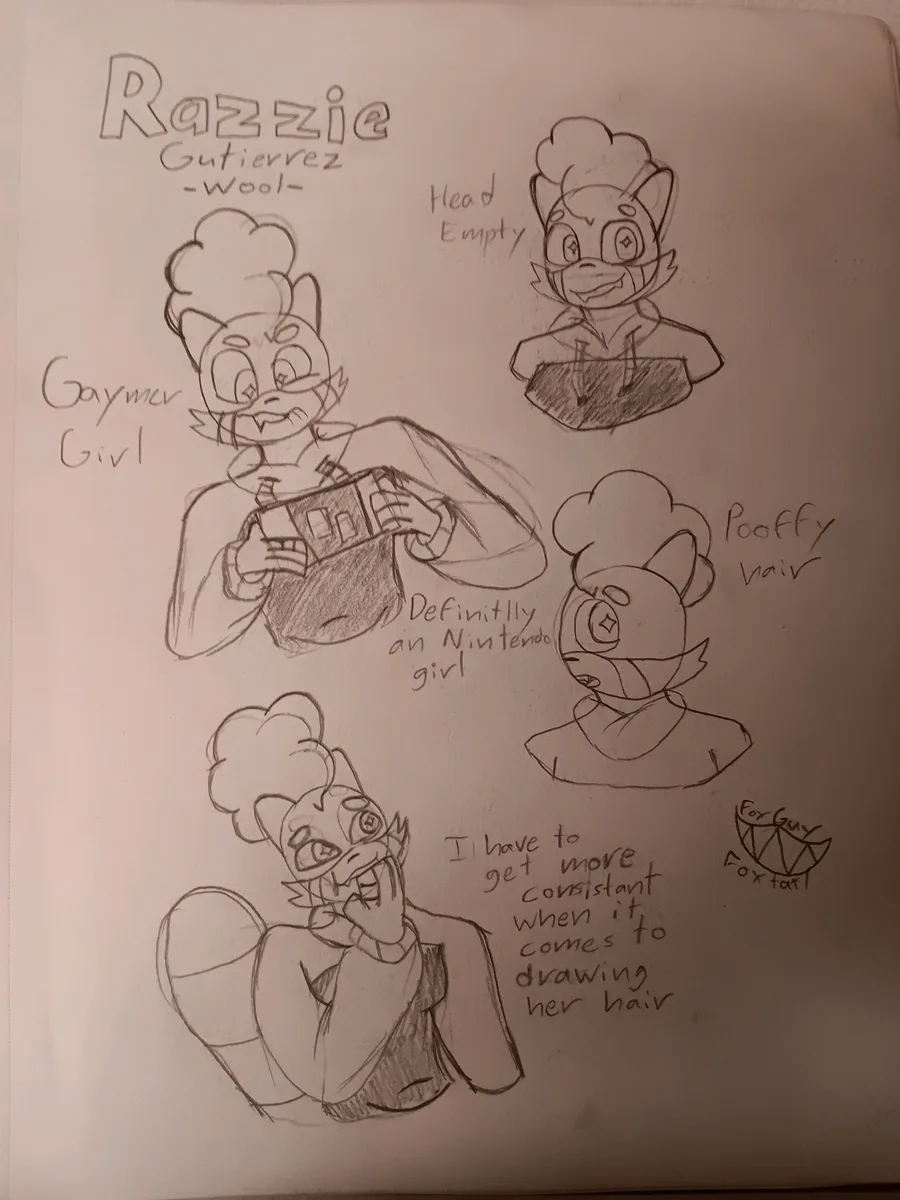 Razzie
Gutierrez
-Wool-
Head
Empty
Gaymer
Girl
Pooffy
hair
Definitlly
an Nintendo
girl
I have to
get more
consistant
when it
comes to
drawing
her hair
For Guy
Foxtail